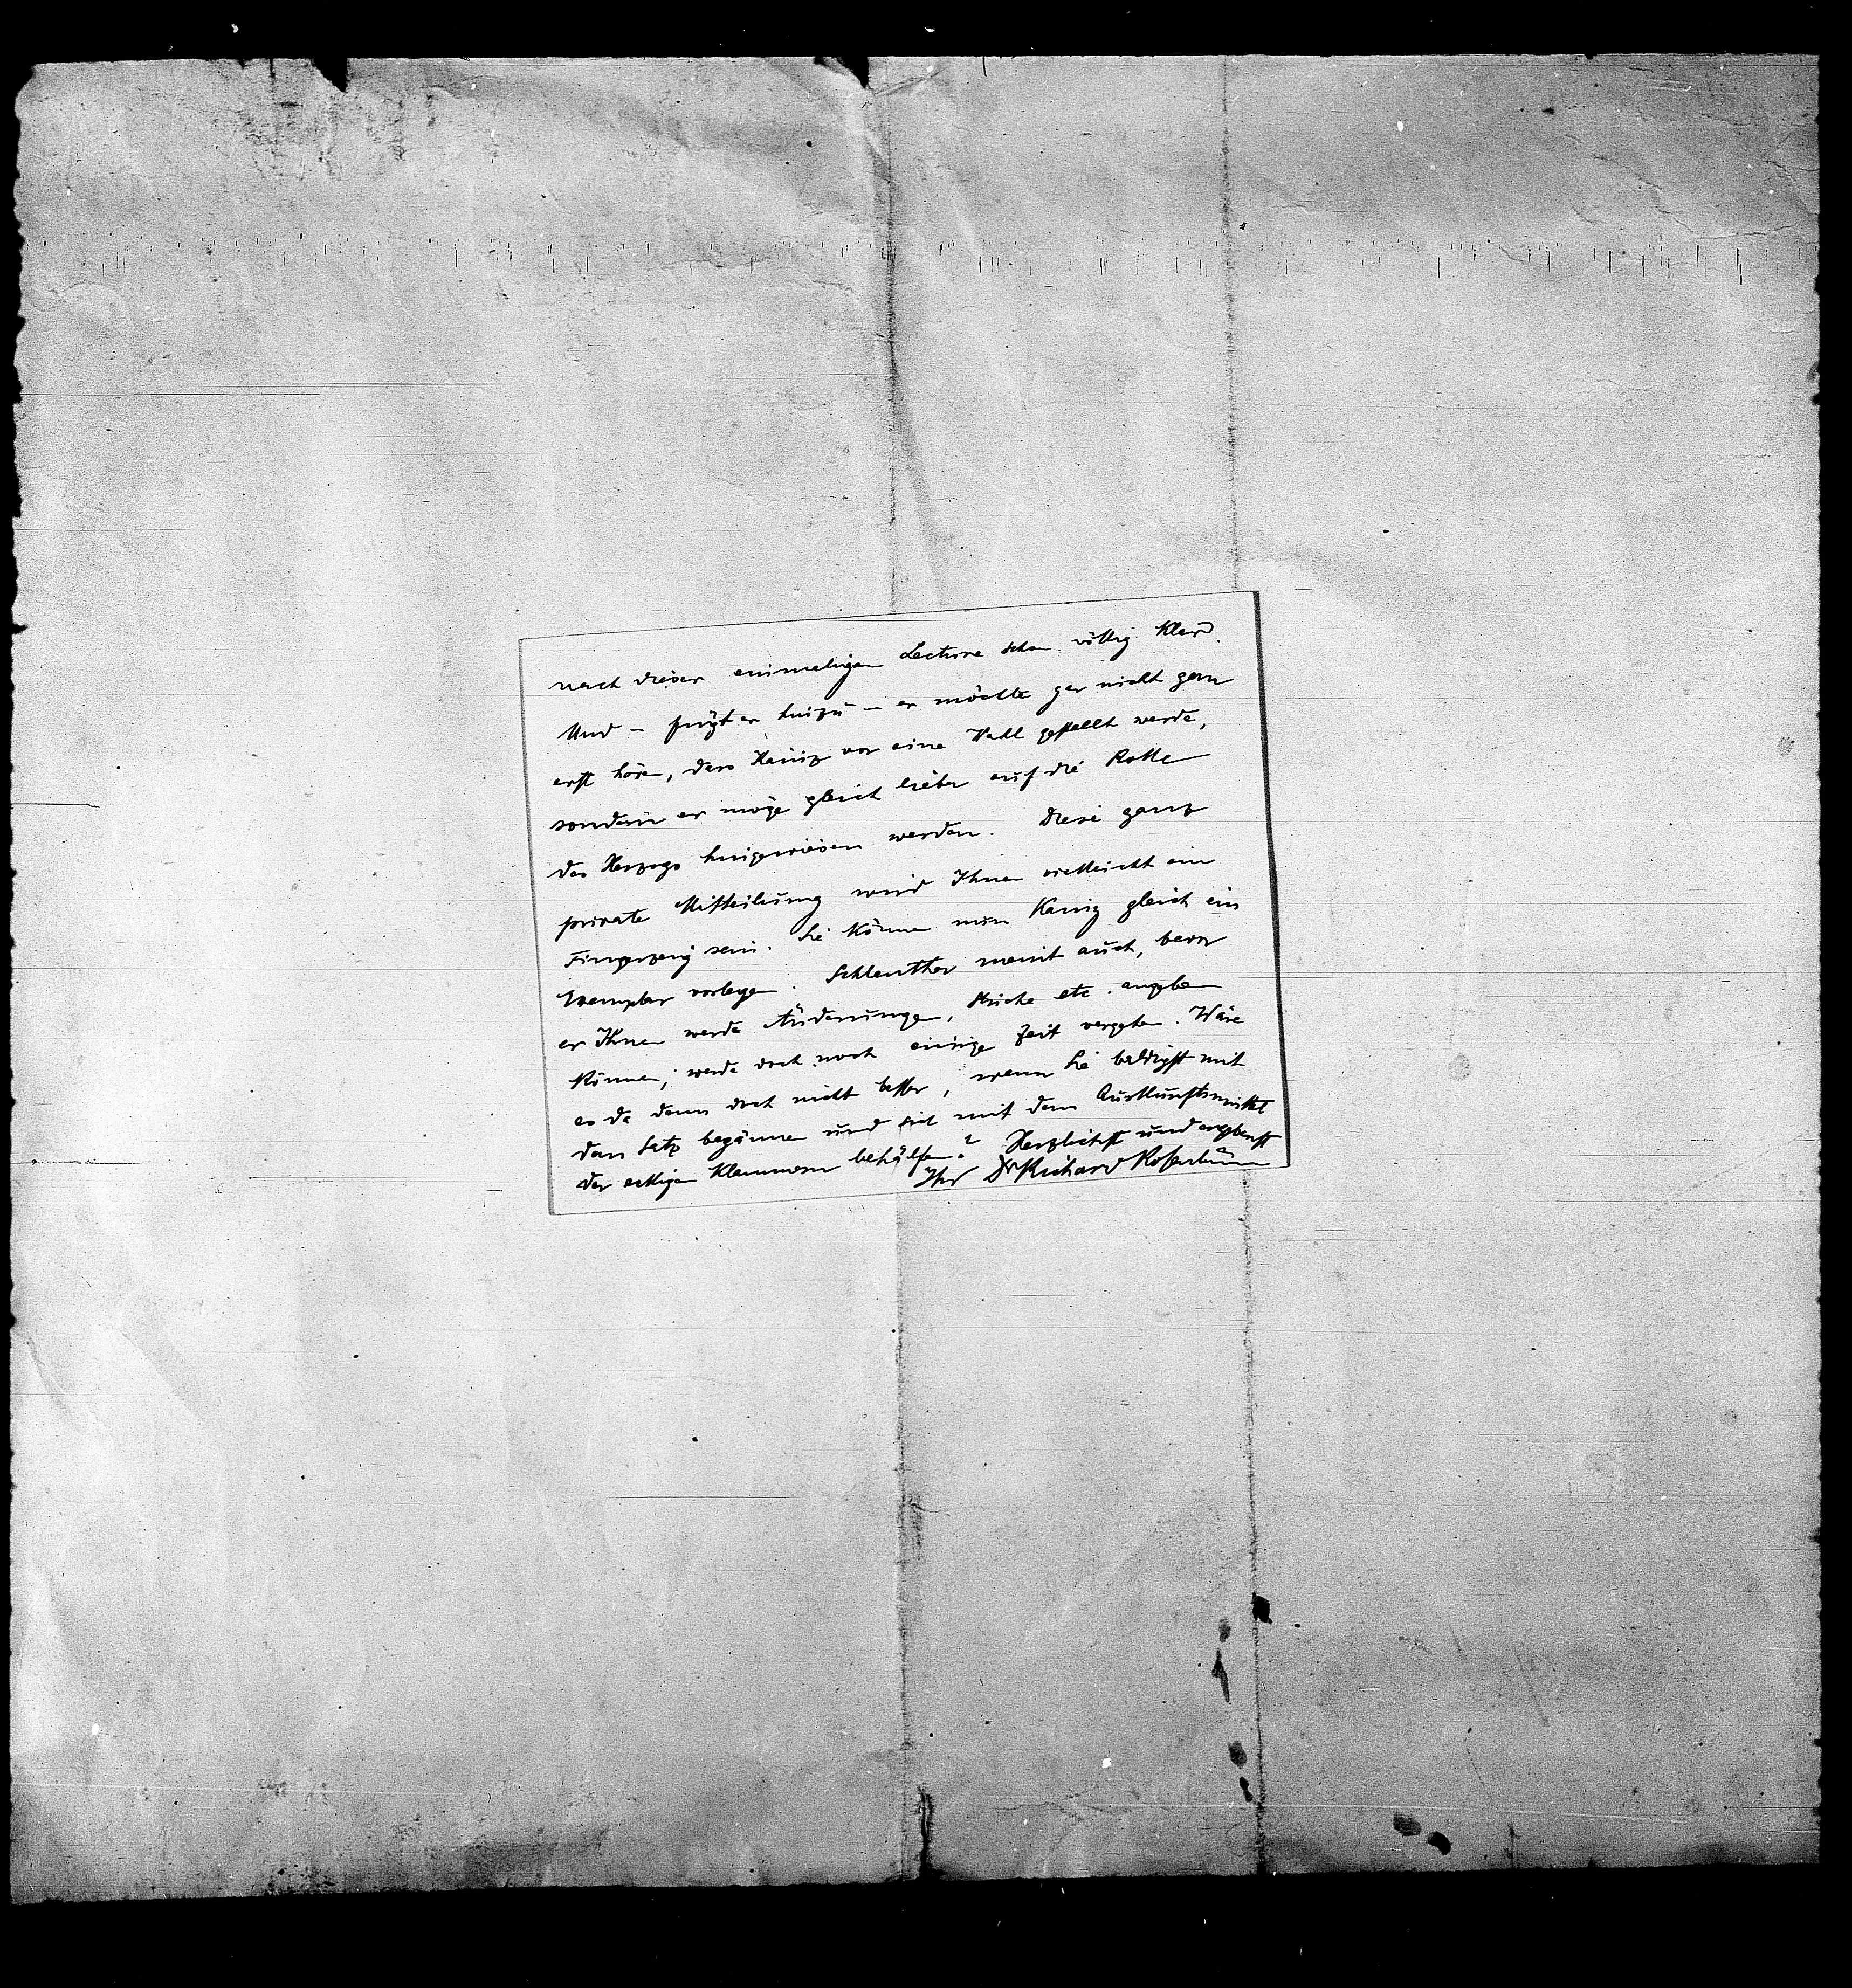 nach dieser einmaligen Lectüre schon völlig klar.
Und – fügt er hinzu – er möchte gar nicht gern
erst hören, dass Kainz vor eine Wahl gestellt werde,
sondern er möge gleich lieber auf die Rolle
des Herzogs hingewiesen werden. Diese ganz
private Mitteilung wird Ihnen vielleicht ein
Fingerzeig sein. Sie können nun Kainz gleich ein
Exemplar vorlegen. Schlenther meint auch, bevor
er Ihnen werde Änderungen, Striche etc. angeben
können, werde doch noch einige Zeit vergehen. Wäre
es da denn doch nicht besser, wenn Sie baldigst mit
dem Satz begännen und sich mit dem Auskunftsmittel
der eckigen Klammern behälfen? Herzlichst und ergebenst
Ihr Dr Richard Rosenbaum